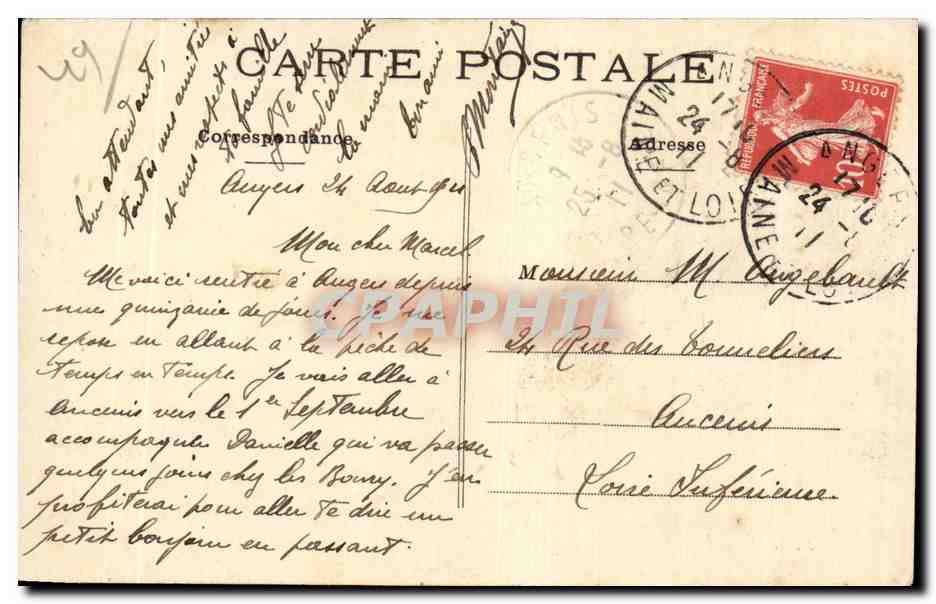 CARTE POSTALE
Correspondance
Adresse
Angers 24 Aout 1911
Mon cher Marcel
Me voici rentré à Angers depuis
une quinzaine de jours. Je me
repose en allant à la pêche de
temps en temps. Je vais aller à
Ancenis vers le 1er Septembre
accompagner Danielle qui va passer
quelques jours chez les Boury. J'en
profiterai pour aller te dire un
petit bonjour en passant.
En attendant,
toutes mes amitiés
et mes respects à
ta famille
Je te serre
cordialement
la main
Ton ami
Monsieur M. Angebault
24 Rue des Tonneliers
Ancenis
Loire Inférieure
RÉPUBLIQUE FRANÇAISE
POSTES
10
MAINE ET LOIRE
24
11
ANGERS
17
24
11
MAINE
CPAPHIL